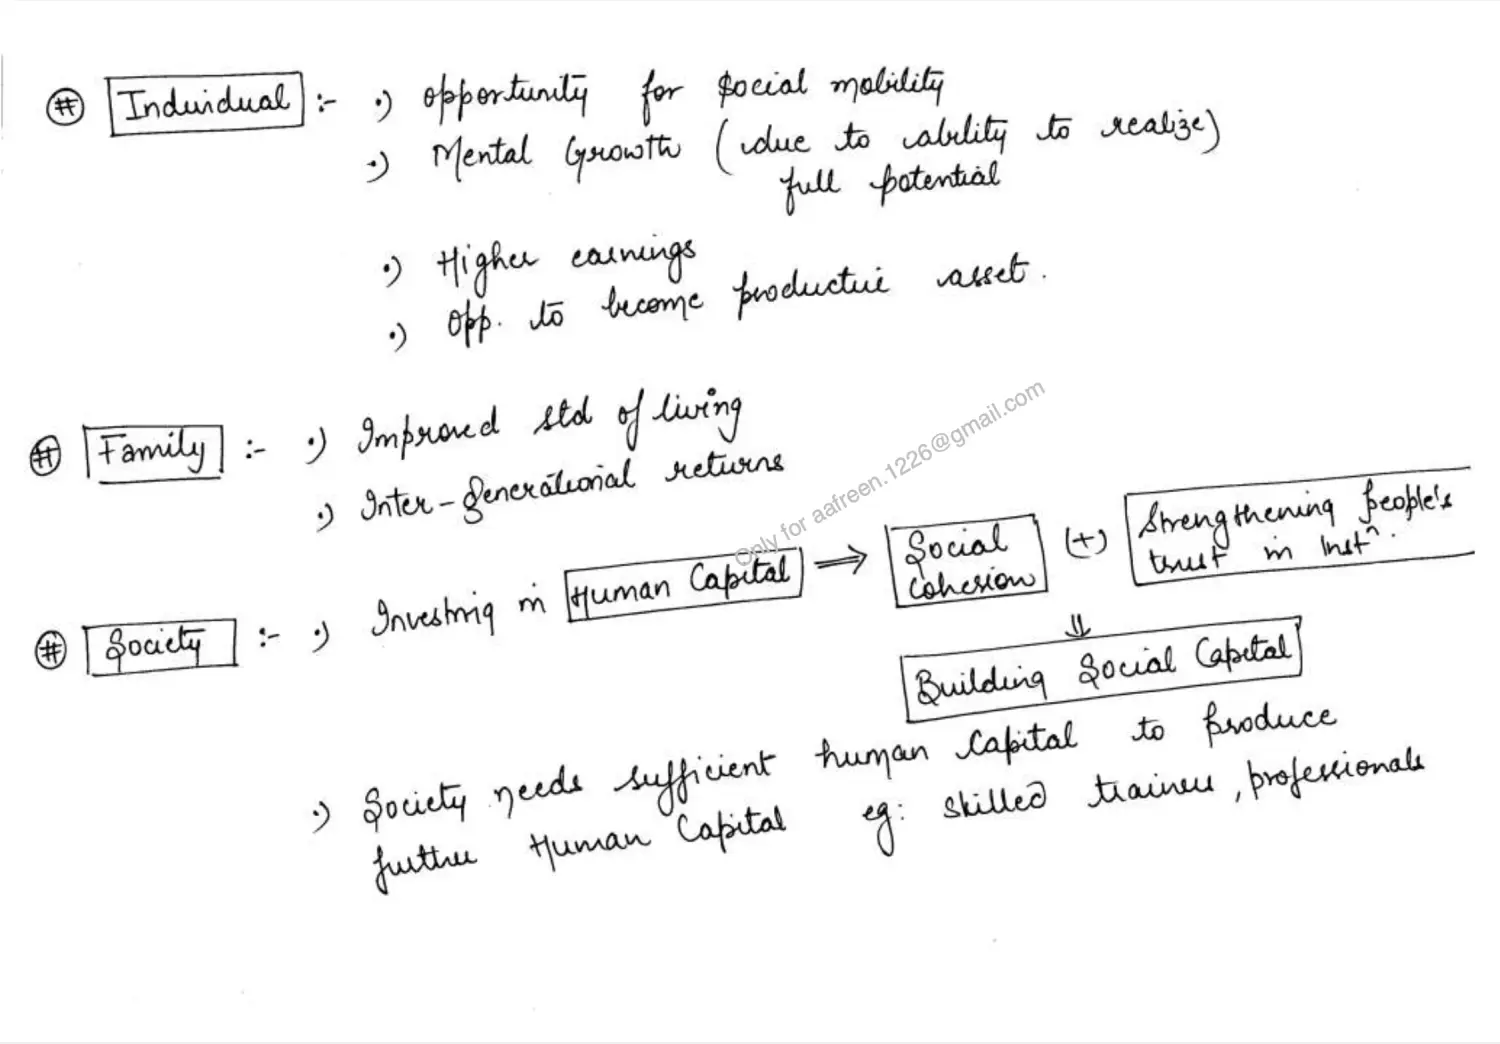 # Individual :- •) Opportunity for Social mobility
•) Mental Growth (due to ability to realize)
full potential
•) Higher earnings
•) Opp. to become productive asset.
# Family :- •) Improved std of living
•) Inter-generational returns
# Society :- •) Investing in Human Capital ⇒ Social Cohesion (+) Strengthening people's trust in Instⁿ.
⇓
Building Social Capital
•) Society needs sufficient human capital to produce
further Human Capital eg: skilled trainers, professionals
Only for aafreen.1226@gmail.com